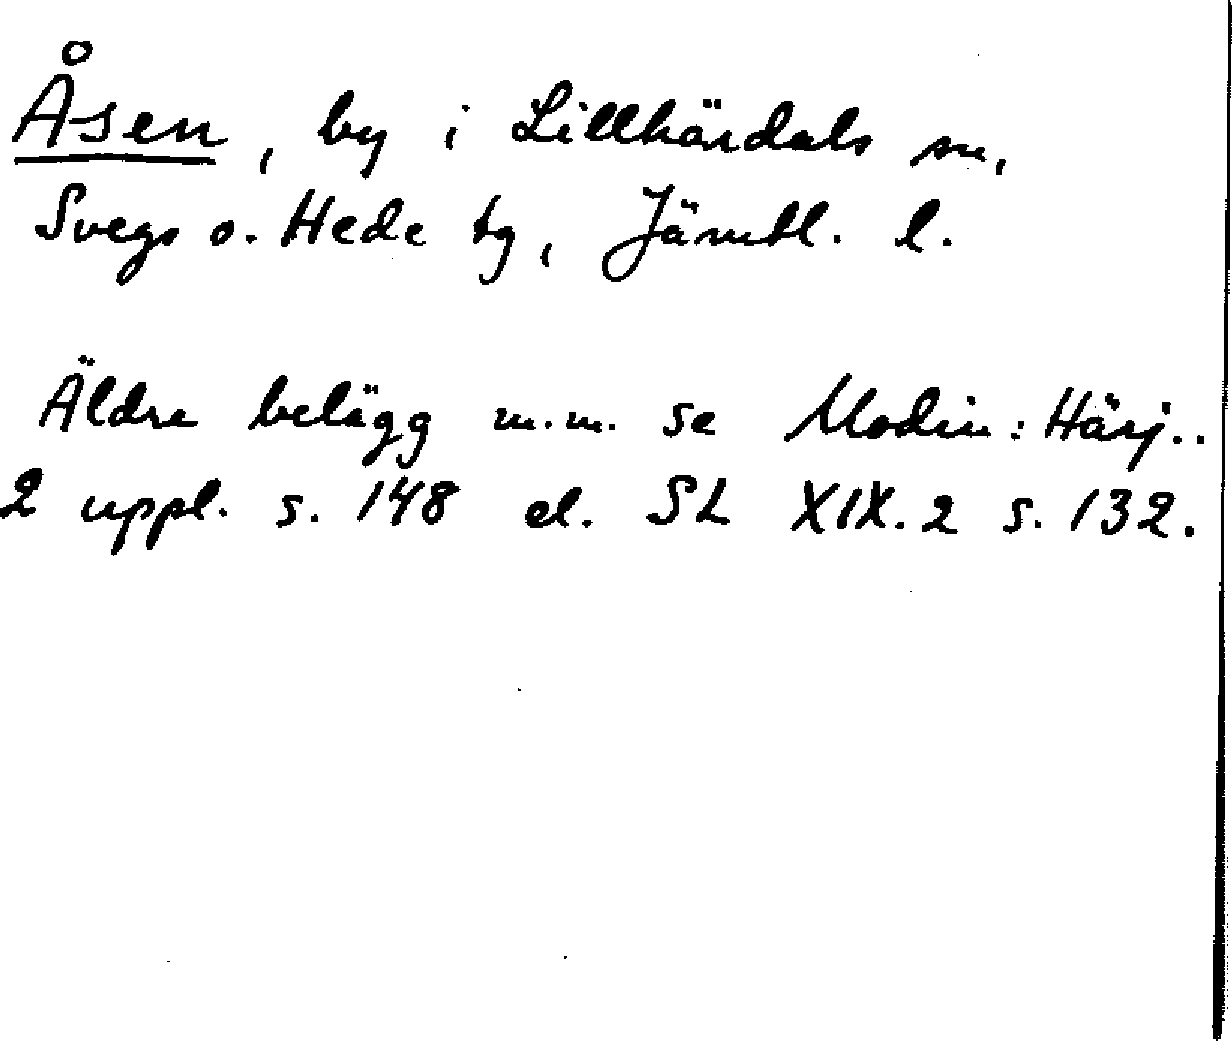 Åsen, by i Lillhärdals sn,
Svegs o. Hede tg, Jämtl. l.
Äldre belägg m.m. se Modin: Härj..
2 uppl. s. 148 el. SL XIX.2 s. 132.